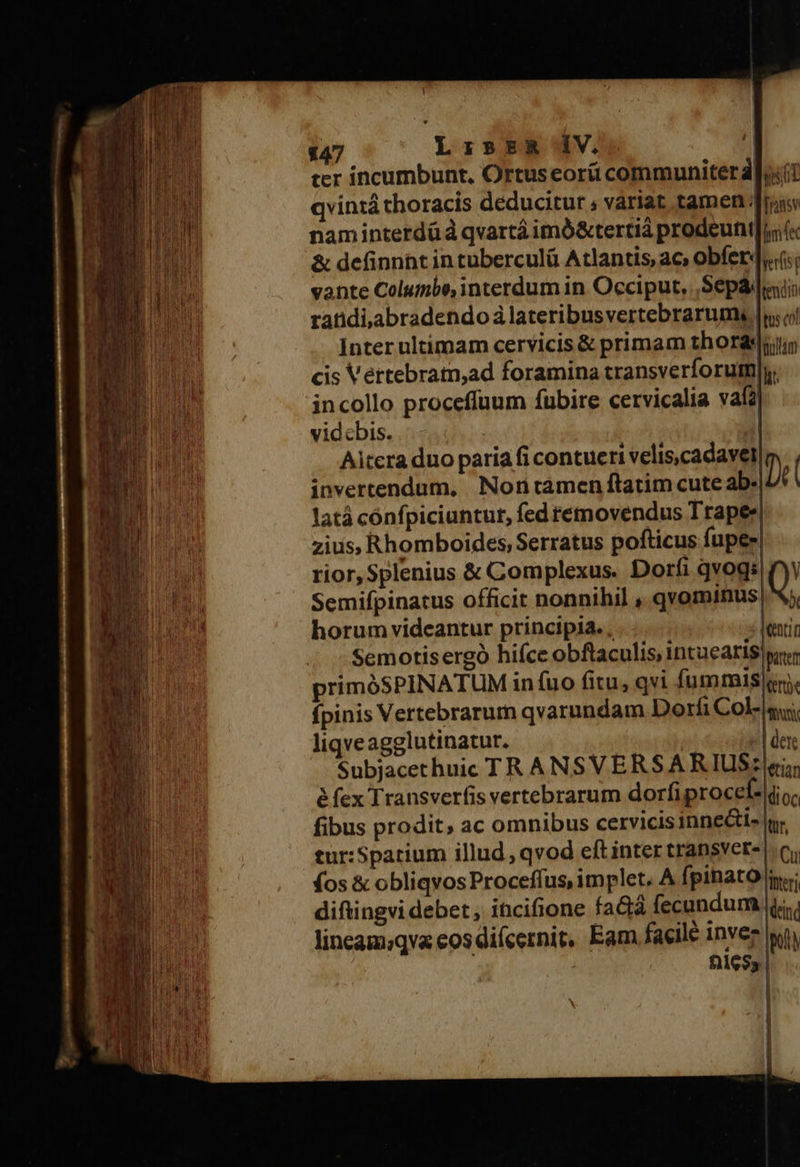 147 LIBER IV.
ter incumbunt. Ortus eorū communiter à
qvintâ thoracis deducitur ; variat tamen :
nam interdū à qvartâ imò & tertiâ prodeunt
& definnnt in tuberculū Atlantis, ac, obſer-
vante Columbo, interdum in Occiput. Sepa-
randi, abradendo à lateribus vertebrarum.
Inter ultimam cervicis & primam thora-
cis Vertebram, ad foramina transverſorum
in collo proceſſuum ſubire cervicalia vaſa
videbis.
Altera duo paria ſi contueri velis, cadaver
invertendum. Non tamen ſtatim cute ab-
latâ conſpiciuntur, ſed removendus Trape-
zius, Rhomboides, Serratus poſticus ſupe-
rior, Splenius & Complexus. Dorſi qvoq;
Semiſpinatus officit nonnihil , qvominus
horum videantur principia.
Semotis ergò hiſce obſtaculis, intuearis
primò SPINATUM in ſuo ſitu, qvi ſummis
ſpinis Vertebrarum qvarundam Dorſi Col-
liqve agglutinatur.
Subjacet huic TRANSVERSARIUS:
è ſex Transverſis vertebrarum dorſi proceſ-
ſibus prodit, ac omnibus cervicis innecti-
tur: Spatium illud , qvod eſt inter transver-
ſos & obliqvos Proceſſus, implet. A ſpinato
diſtingvi debet, inciſione factâ ſecundum
lineam, qvæ eos diſcernit. Eam facilè inve-
nies,